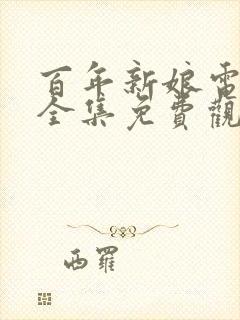 百年新娘電
全集免費觀
西羅